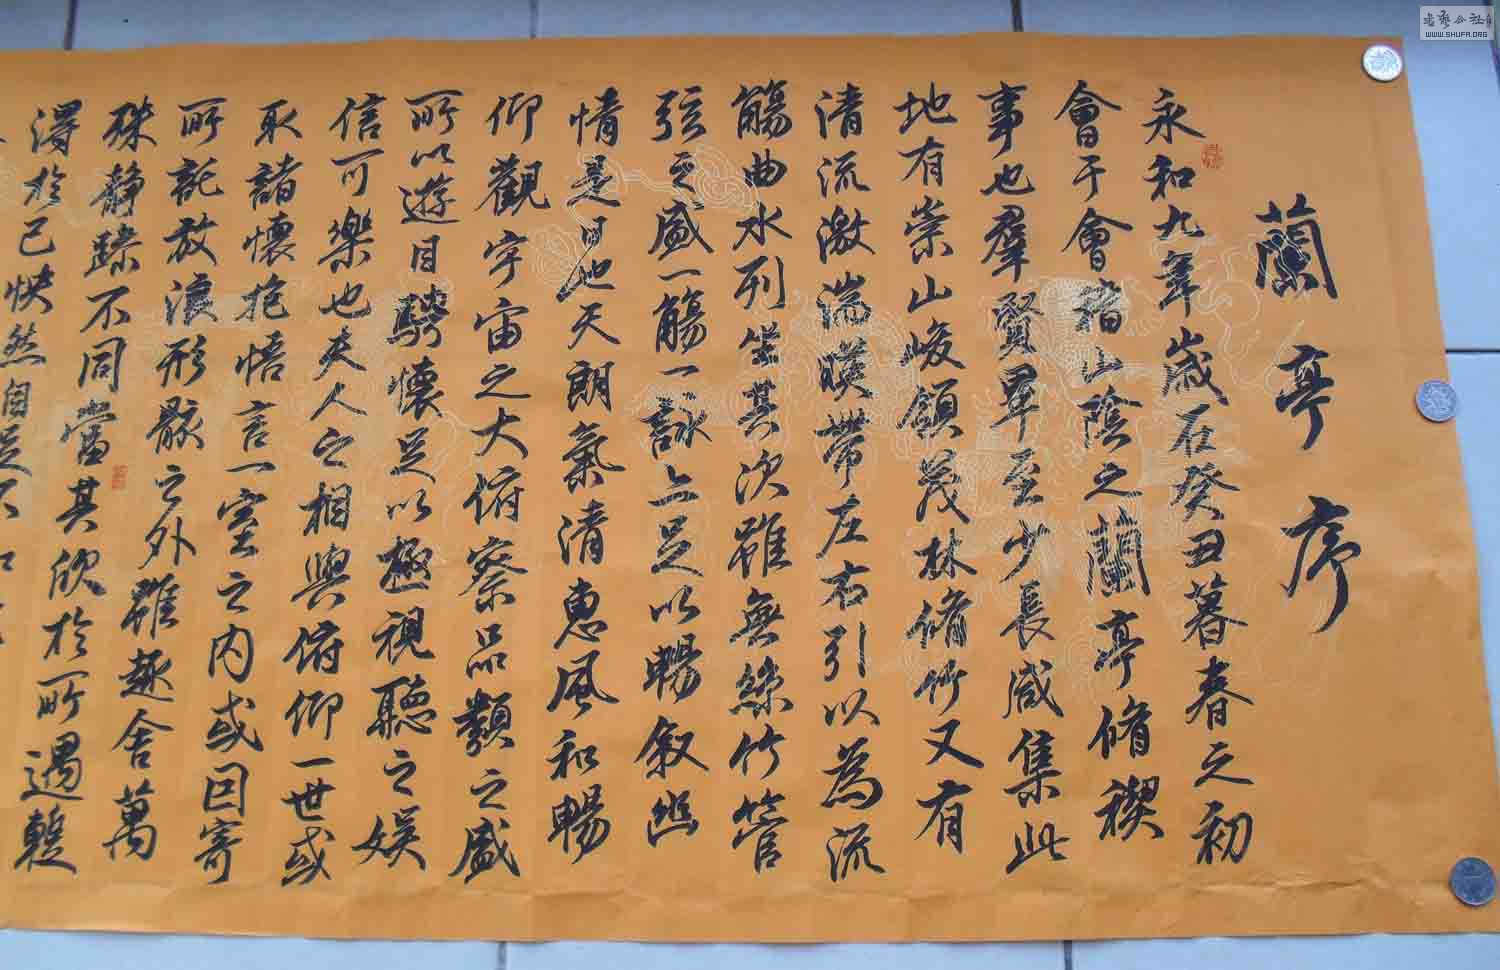 蘭亭序
永和九年歲在癸丑暮春之初
會于會稽山陰之蘭亭脩禊
事也羣賢畢至少長咸集此
地有崇山峻領茂林脩竹又有
清流激湍暎帶左右引以為流
觴曲水列坐其次雖無絲竹管
弦之盛一觴一詠亦足以暢叙幽
情是日也天朗氣清惠風和暢
仰觀宇宙之大俯察品類之盛
所以遊目騁懷足以極視聽之娛
信可樂也夫人之相與俯仰一世或
取諸懷抱悟言一室之内或因寄
所託放浪形骸之外雖趣舍萬
殊静躁不同當其欣於所遇蹔
得於己快然自足不知
WWW.SHUFA.ORG